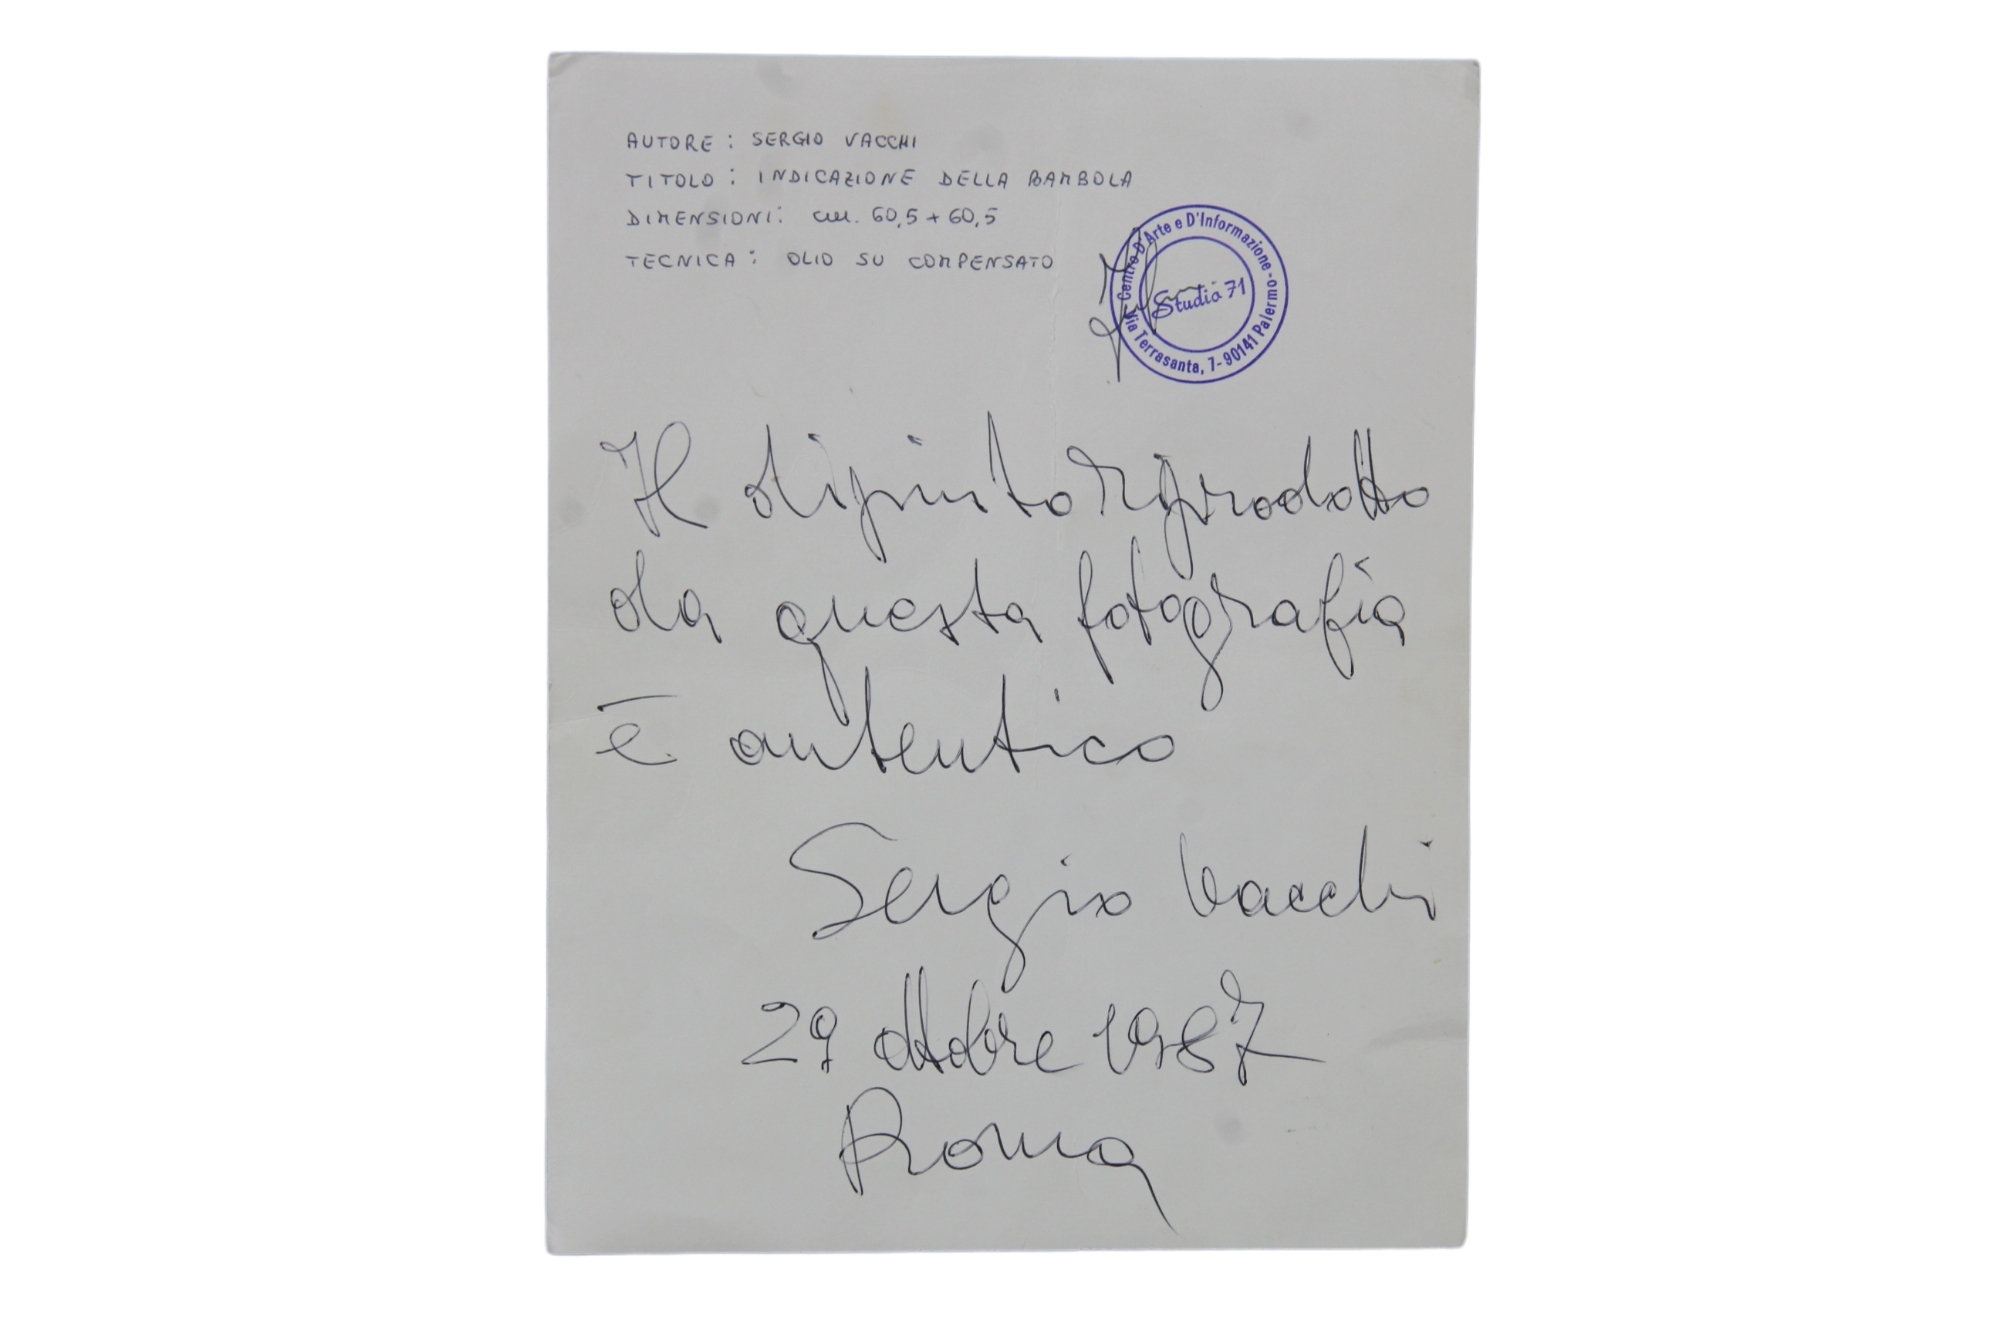 AUTORE : SERGIO VACCHI
TITOLO : INDICAZIONE DELLA BAMBOLA
DIMENSIONI: cm. 60,5 + 60,5
TECNICA : OLIO SU COMPENSATO
Centro D'Arte e D'Informazione -
Studio 71
Via Terrasanta, 7 - 90141 Palermo -
Il dipinto riprodotto
da questa fotografia
è autentico
Sergio Vacchi
29 ottobre 1987
Roma